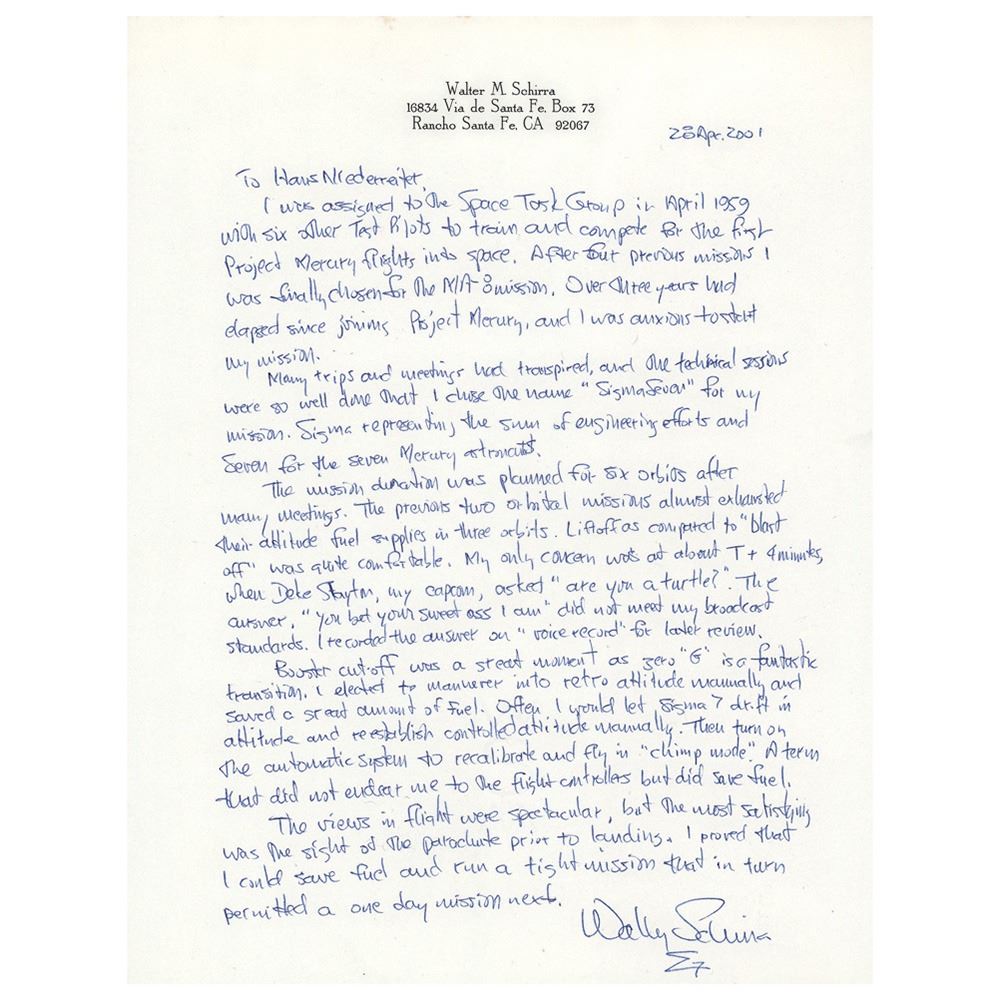 Walter M. Schirra
16834 Via de Santa Fe. Box 73
Rancho Santa Fe, CA 92067
28 Apr. 2001
To Hans Niederreiter,
I was assigned to the Space Task Group in April 1959
with six other Test Pilots to train and compete for the first
Project Mercury flights into space. After four previous missions I
was finally chosen for the MA-8 mission. Over three years had
elapsed since joining Project Mercury, and I was anxious to start
my mission.
Many trips and meetings had transpired, and the technical sessions
were so well done that I chose the name "Sigma Seven" for my
mission. Sigma representing the sum of engineering efforts and
Seven for the seven Mercury astronauts.
The mission duration was planned for six orbits after
many meetings. The previous two orbital missions almost exhausted
their attitude fuel supplies in three orbits. Liftoff as compared to "blast
off" was quite comfortable. My only concern was at about T + 4 minutes,
when Deke Slayton, my capcom, asked "are you a turtle?". The
answer, "You bet your sweet ass I am" did not meet my broadcast
standards. I recorded the answer on "voice record" for later review.
Booster cut-off was a great moment as zero "G" is a fantastic
transition. I elected to maneuver into retro attitude manually and
saved a great amount of fuel. Often I would let Sigma 7 drift in
attitude and reestablish controlled attitude manually. Then turn on
the automatic system to recalibrate and fly in "chimp mode". A term
that did not endear me to the flight controllers but did save fuel.
The views in flight were spectacular, but the most satisfying
was the sight of the parachute prior to landing. I proved that
I could save fuel and run a tight mission that in turn
permitted a one day mission next.
Wally Schirra
Σ7